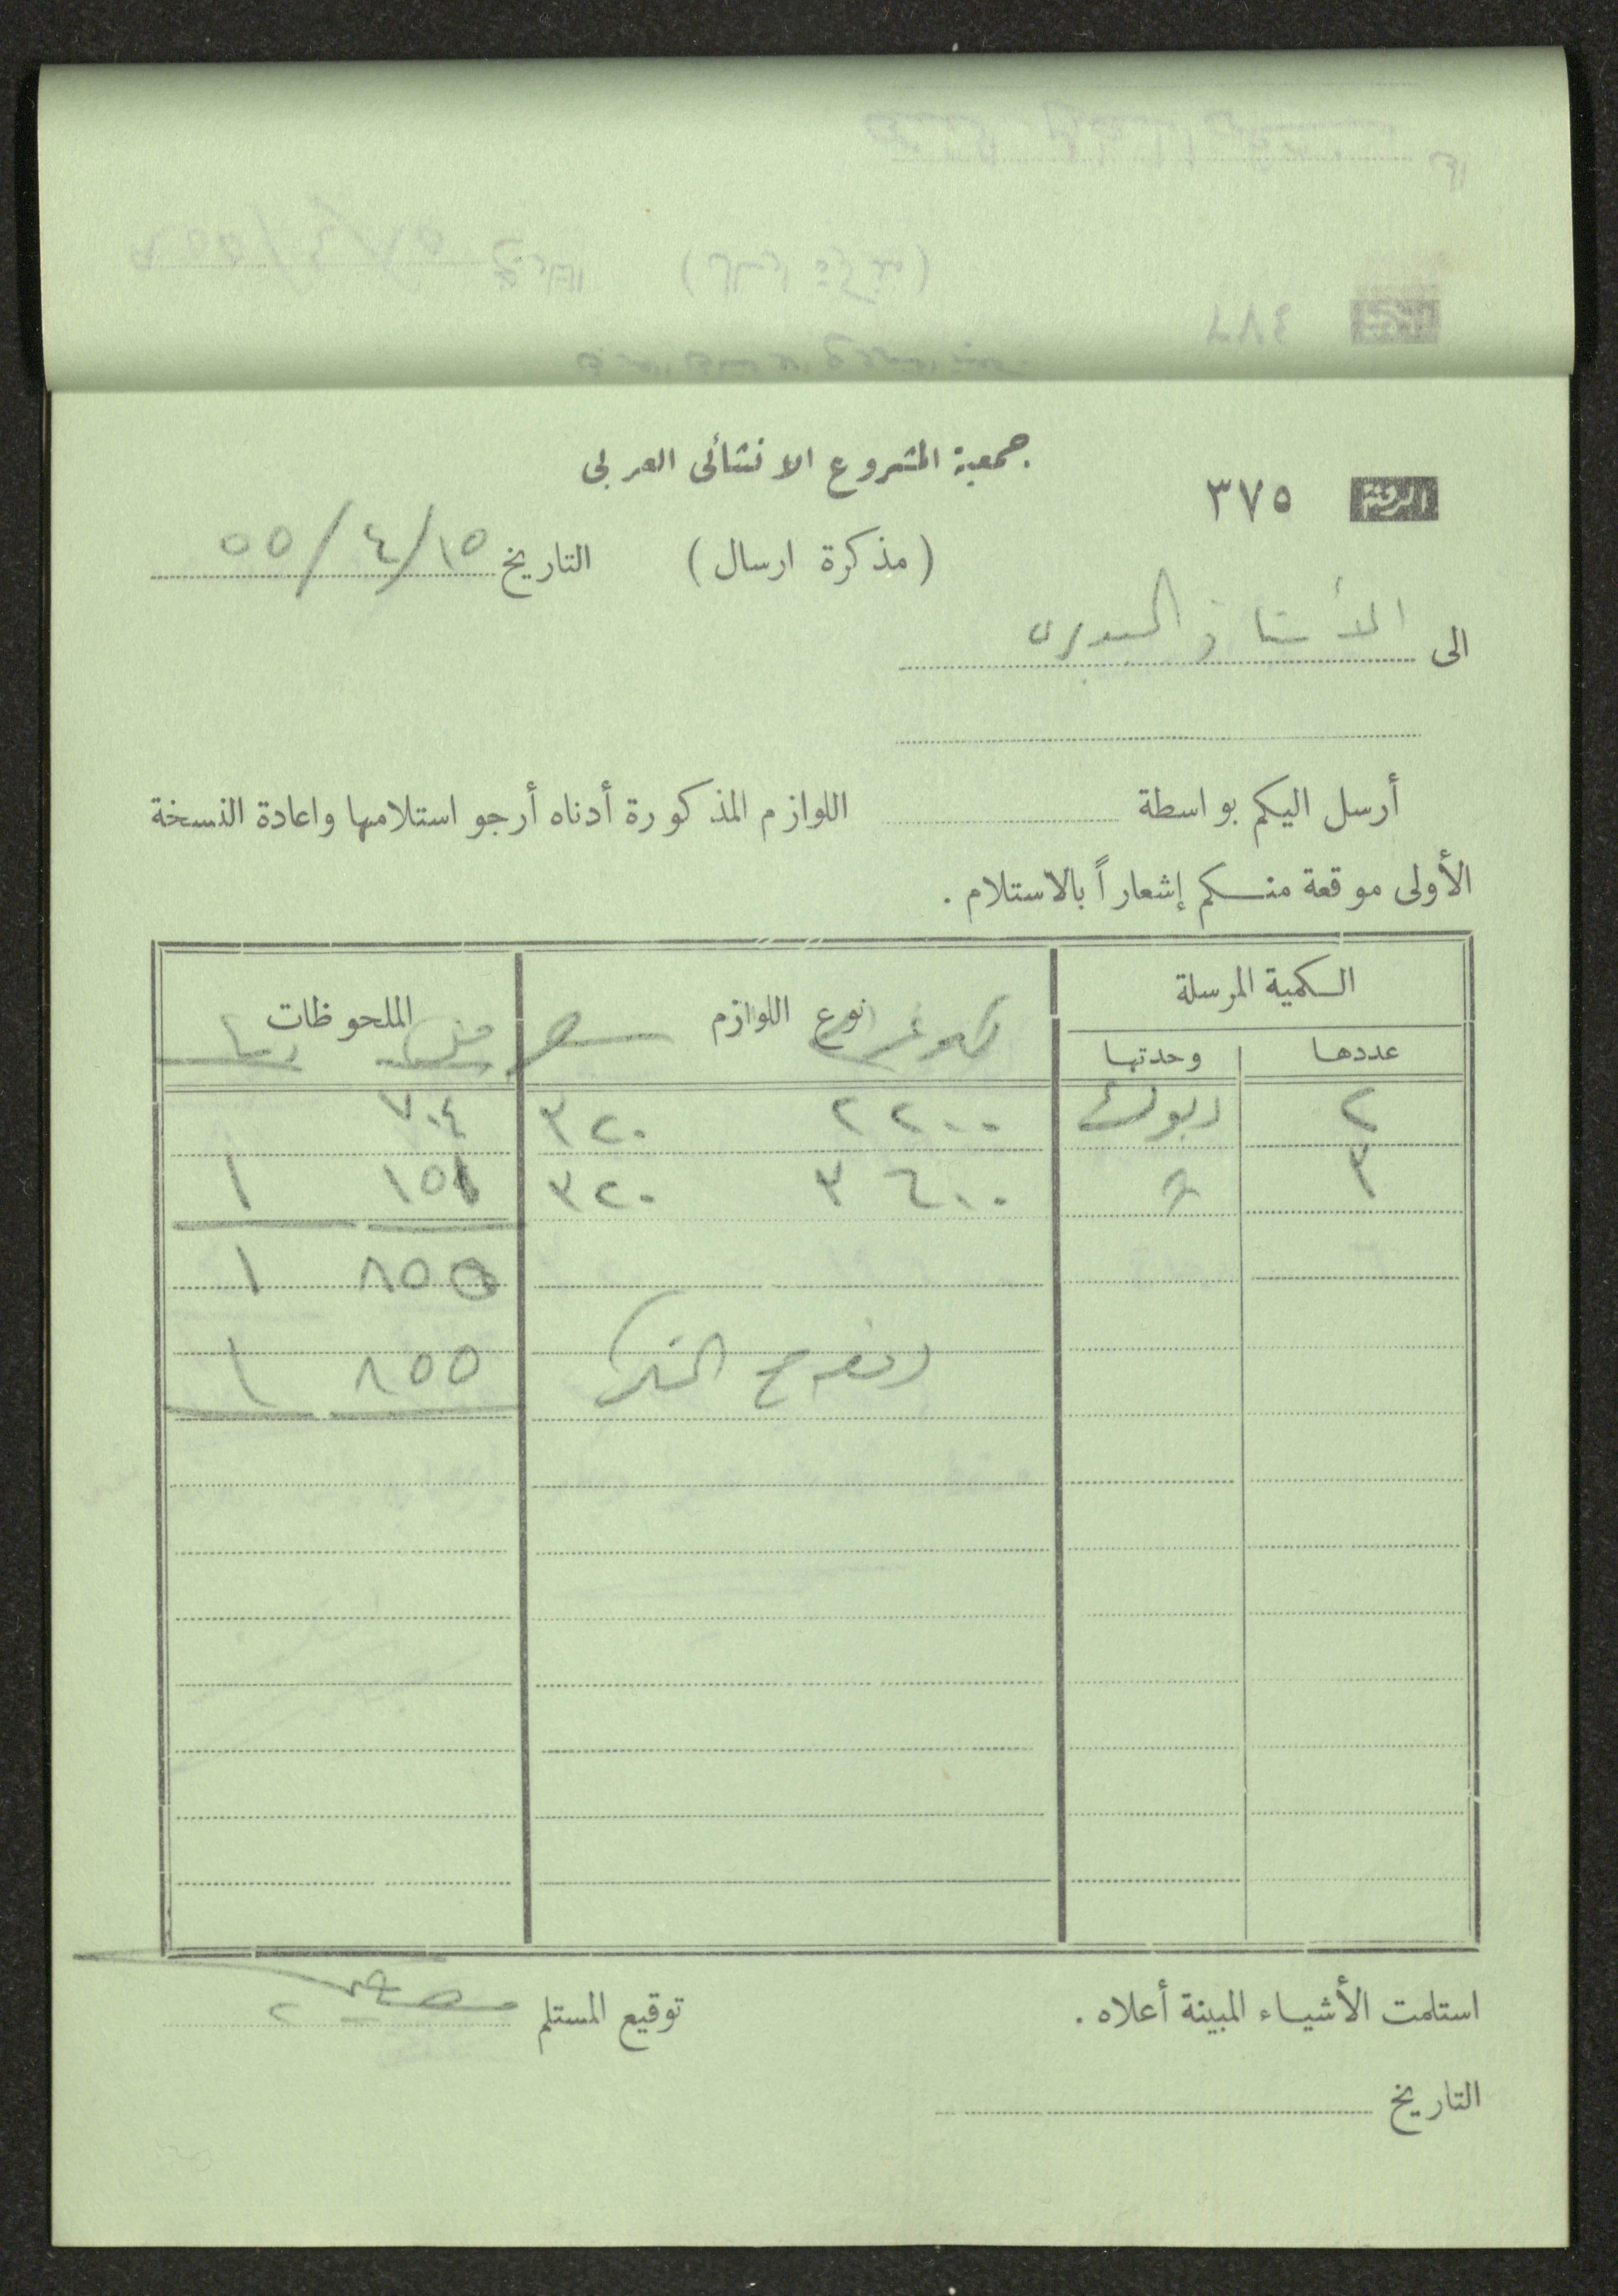 جمعية المشروع الانشائى العربى
الرقم ٣٧٥
(مذكرة ارسال) التاريخ ١٥/٤/٥٥
الى الأستاذ
أرسل اليكم بواسطة اللوازم المذكورة أدناه أرجو استلامها واعادة النسخة
الأولى موقعة منكم إشعاراً بالاستلام .
الكمية المرسلة نوع اللوازم الملحوظات
عددها وحدتها كيلو غرام سعر فلس
٢ ديوك ٢٢٠٠ ٣٢٠ ٧٠٤
٣ ٣٦٠٠ ٣٢٠ ١٥١ ١
٨٥٥ ١
٨٥٥ ١
استلمت الأشياء المبينة أعلاه . توقيع المستلم
التاريخ